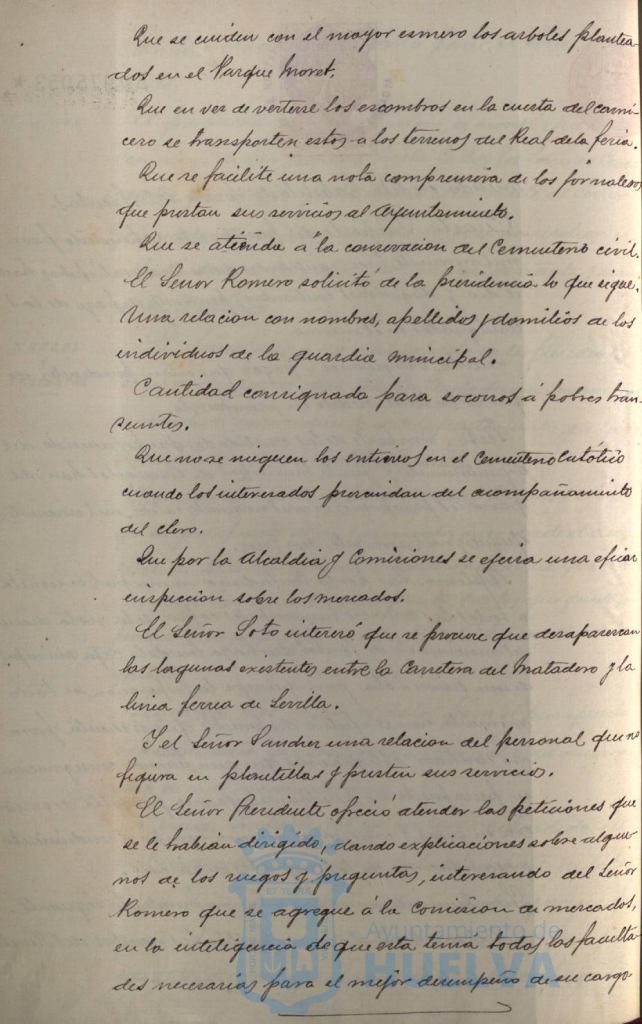 Que se cuiden con el mayor esmero los arboles plantea-
dos en el Parque Moret.
Que en vez de verterse los escombros en la cuesta del carni-
cero se transporten estos a los terrenos del Real de la feria.
Que se facilite una nota comprensiva de los jornaleros
que prestan sus servicios al Ayuntamiento.
Que se atienda á la conservacion del Cementerio civil.
El Señor Romero solicitó de la presidencia lo que sigue.
Una relacion con nombres, apellidos y domilios de los
individuos de la guardia municipal.
Cantidad consignada para socorros á pobres tran-
seuntes.
Que no se nieguen los entierros en el Cementerio Católico
cuando los interesados prescindan del acompañamiento
del clero.
Que por la Alcaldia y Comisiones se ejerza una eficaz
inspeccion sobre los mercados.
El Señor Soto interesó que se procure que desaparezcan
las lagunas existentes entre la Carretera del Matadero y la
linea ferrea de Sevilla.
Y el Señor Sanchez una relacion del personal que no
figura en plantillas y presten sus servicios.
El Señor Presidente ofreció atender las peticiones que
se le habian dirigido, dando explicaciones sobre algu-
nos de los ruegos y preguntas, interesando del Señor
Romero que se agregue á la Comision de mercados,
en la inteligencia de que esta tenia todas las faculta-
des necesarias para el mejor desempeño de su cargo
Ayuntamiento de
HUELVA